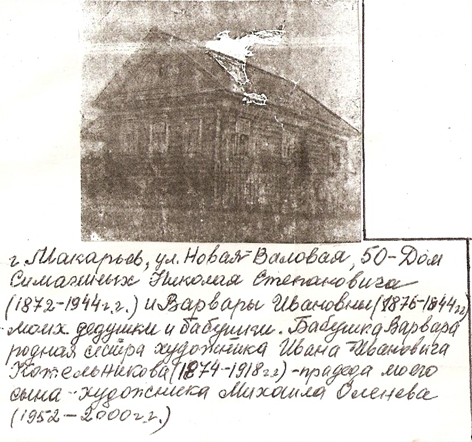 г. Макарьев, ул. Новая-Валовая, 50-Дом
Симагиных Николая Степановича
(1872-1944г.г.) и Варвары Ивановны (1876-1944гг)
-моих дедушки и бабушки. Бабушка Варвара
родная сестра художника Ивана Ивановича
Котельникова (1874-1918г.г) -прадеда моего
сына -художника Михаила Оленева
(1952-2000г.г.)